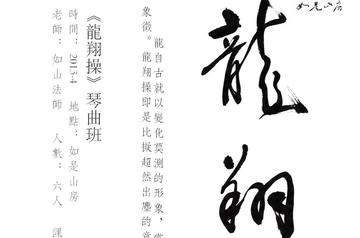 如是山房
龍翔
龍自古就以變化莫測的形象，
象徵。龍翔操即是比擬超然出塵的意
《龍翔操》琴曲班
時間：2013-4 地點：如是山房
老師：如山法師 人數：六人 課